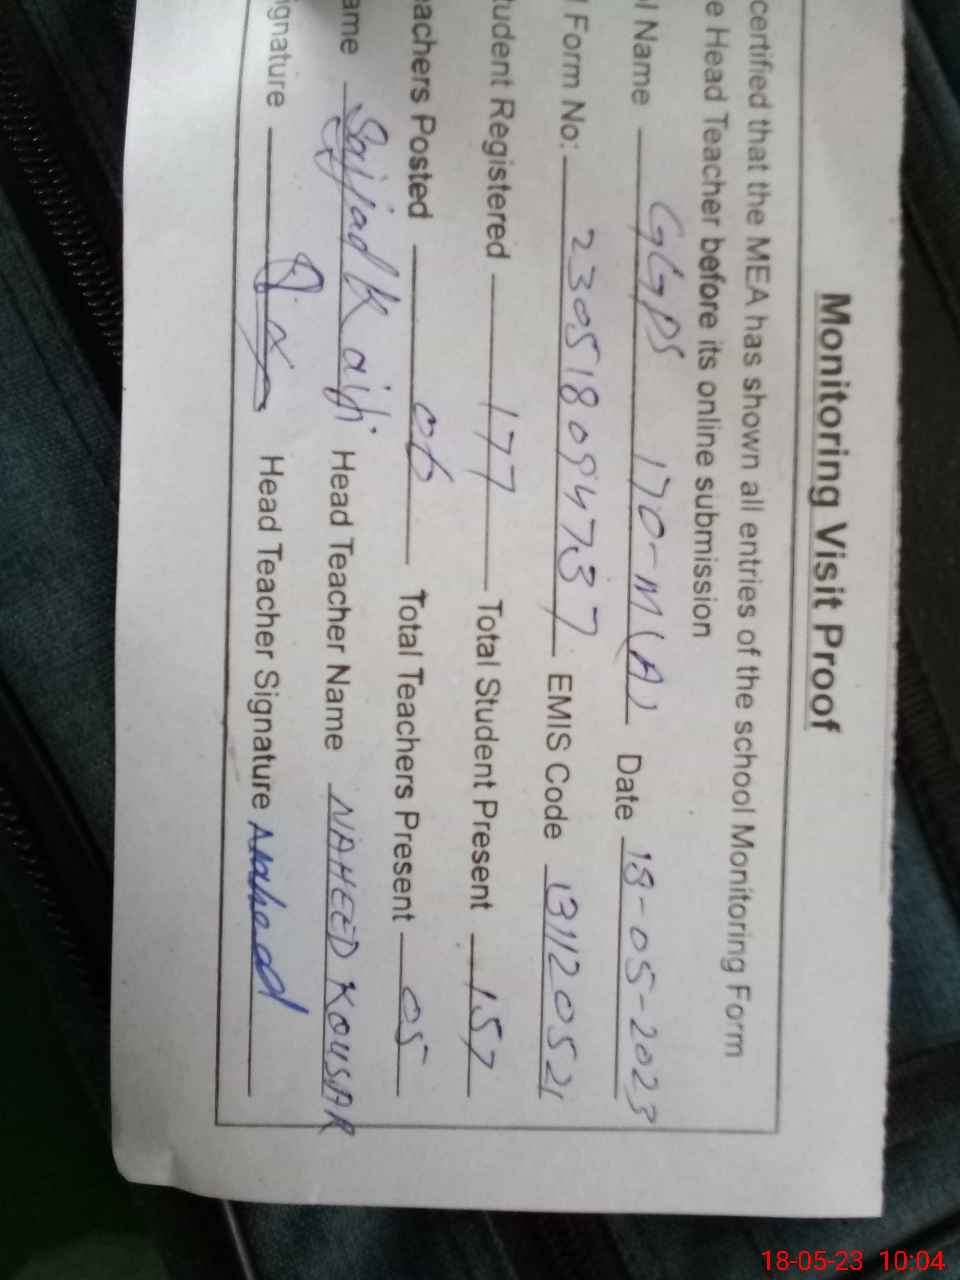 Monitoring Visit Proof
certified that the MEA has shown all entries of the school Monitoring Form
e Head Teacher before its online submission
l Name GGPS 170-M(A) Date 18-05-2023
l Form No: 230518094737 EMIS Code 31120521
tudent Registered 177 Total Student Present 157
eachers Posted 06 Total Teachers Present 05
ame Sajjad Head Teacher Name NAHEED KOUSAR
ignature Head Teacher Signature
18-05-23 10:04